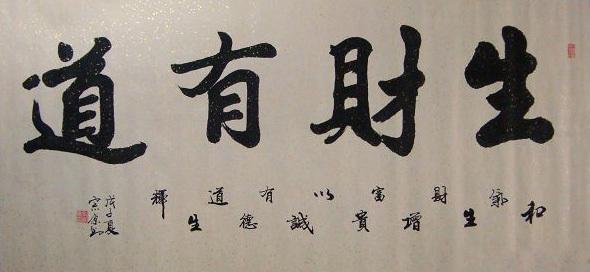 生財有道
和氣生財增富貴以誠有德道生輝
戊子夏